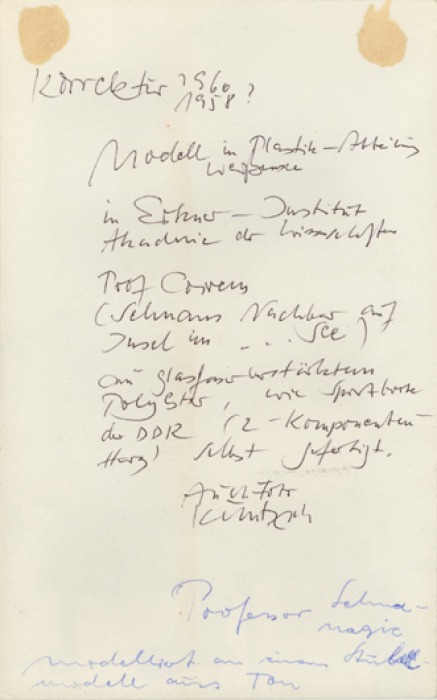 Korrektur 1960
1958?
Modell in Plastik-Abteilung
Weißensee
in Erkner - Institut
Akademie der Wissenschaften
Prof Correns
(Selmans Nachbar auf
Insel im . . . See)
aus glasfaserverstärktem
Polyester, wie Sportboote
der DDR (2-Komponenten
Harz) selbst gefertigt.
Auch Foto
Professor Selma-
nagic
modelliert an einem Stuhl-
modell aus Ton